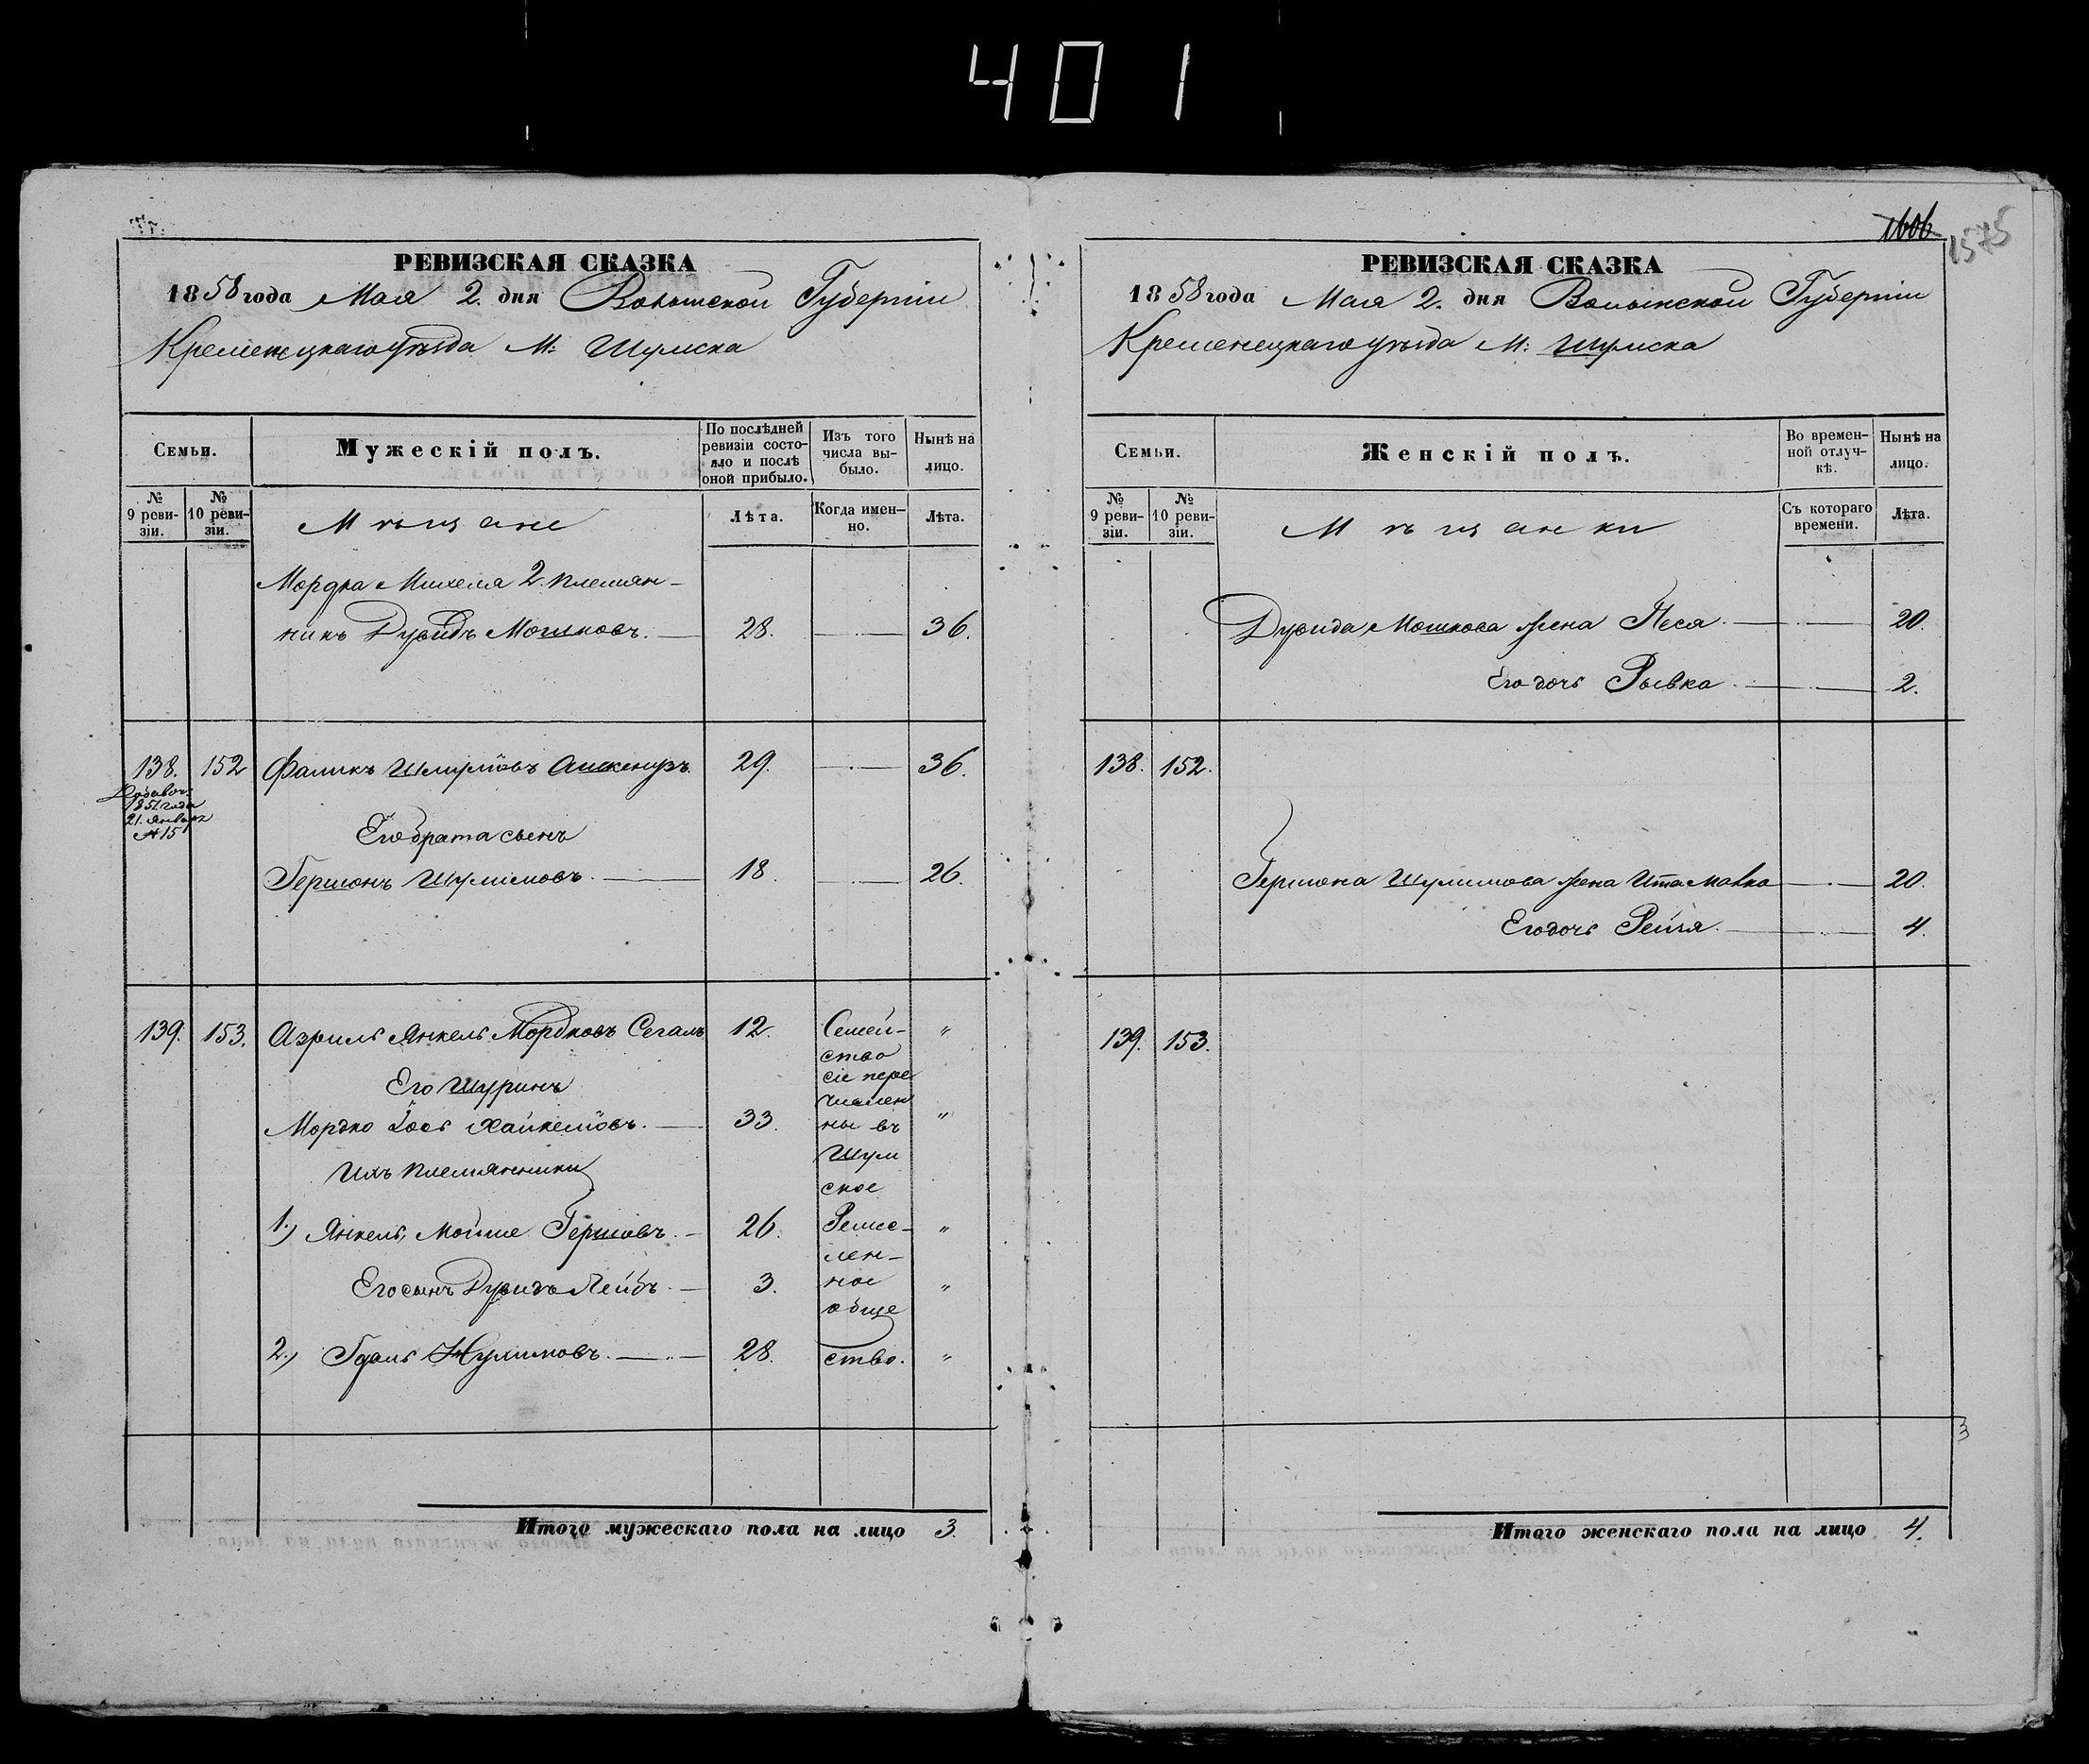 401
РЕВИЗСКАЯ СКАЗКА
1858 года Мая 2. дня Волынской Губерніи
Кременецкаго уѣзда М: Шумска
Семьи.
Мужескій полъ.
По послѣдней ревизіи состояло и послѣ оной прибыло.
Изъ того числа выбыло.
Нынѣ на лицо.
№ 9 ревизіи.
№ 10 ревизіи.
Мѣщане
Лѣта.
Когда именно.
Лѣта.
Мордка Михеля 2. племян-
никъ Дувидъ Мошковъ. 28. 36.
138. 152 Фаликъ Шлумовъ 29. 36.
1851 года
21. Января
№ 15
Его брата сынъ
Гершонъ Шулимовъ. 18. 26.
139. 153. Азриль Янкель Мордковъ Сегалъ 12. Семей- "
ство
Его Шуринъ сіе пере
числен
Мордко Іось Хаикелювъ. 33. ны въ "
Шум
Ихъ племянники
ское
1.) Янкель Мойше Гершовъ. 26. Ремес- "
лен-
Его сынъ Дувидъ Лейбъ. 3. ное "
обще
2.) Гдаль Нухимовъ. 28. ство. "
Итого мужескаго пола на лицо 3.
1606
1575
РЕВИЗСКАЯ СКАЗКА
1858 года Мая 2. дня Волынской Губерніи
Кременецкаго уѣзда М: Шумска
Семьи.
Женскій полъ.
Во временной отлучкѣ.
Нынѣ на лицо.
№ 9 ревизіи.
№ 10 ревизіи.
Мѣщанки
Съ котораго времени.
Лѣта.
Дувида Мошкова жена Песя 20.
Его дочь Рывка 2.
138. 152.
Гершона Шулимова жена Ита Малка 20.
Его дочь Рейзя 4.
139. 153.
3
Итого женскаго пола на лицо 4.